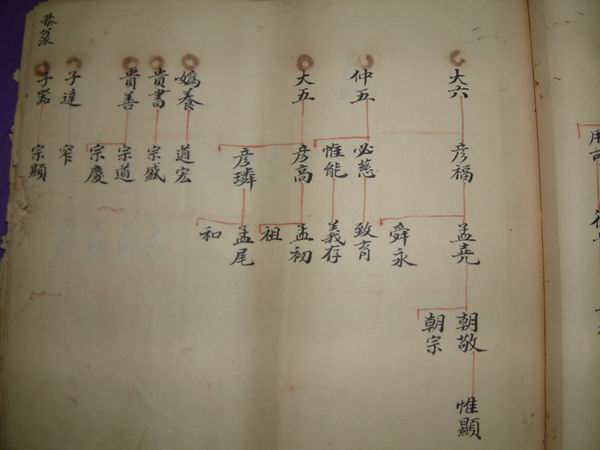 大六
彥福
孟堯
朝敬
惟顯
朝宗
舜永
仲五
必慈
致育
惟能
義存
大五
彥高
孟初
祖
彥璘
孟尾
和
嬀養
道宏
貴書
宗盛
貴善
宗道
宗慶
子達
窄
子器
宗顯
恭派